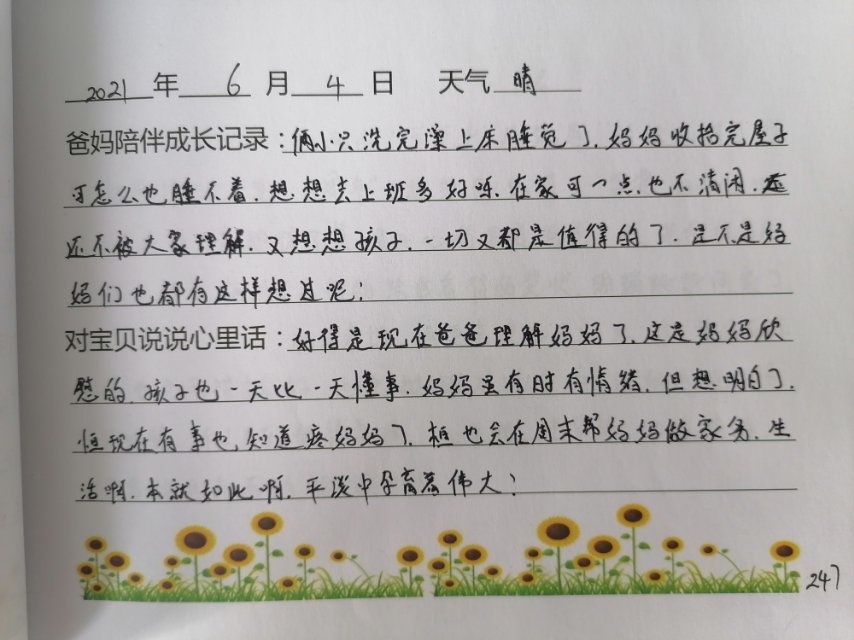 2021 年 6 月 4 日 天气 晴
爸妈陪伴成长记录：俩小只洗完澡上床睡觉了，妈妈收拾完屋子
可怎么也睡不着，想想去上班多好呀，在家可一点也不清闲，
还不被大家理解，又想想孩子，一切又都是值得的了，是不是妈
妈们也都有这样想过呢！
对宝贝说说心里话：好得是现在爸爸理解妈妈了，这是妈妈欣
慰的，孩子也一天比一天懂事，妈妈虽有时有情绪，但想明白了，
恒现在有事也知道疼妈妈了，桓也会在周末帮妈妈做家务，生
活啊，本就如此啊，平淡中孕育着伟大！
247